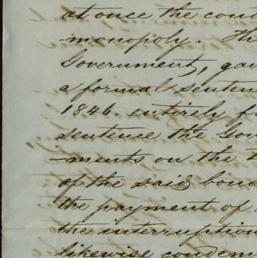 at once the cond
monopoly. Th
Government, gav
a formal senten
1846. entirely f
sentence the Gov
-ments on the
of the said bond
the payment of
the interruption
likewise condem